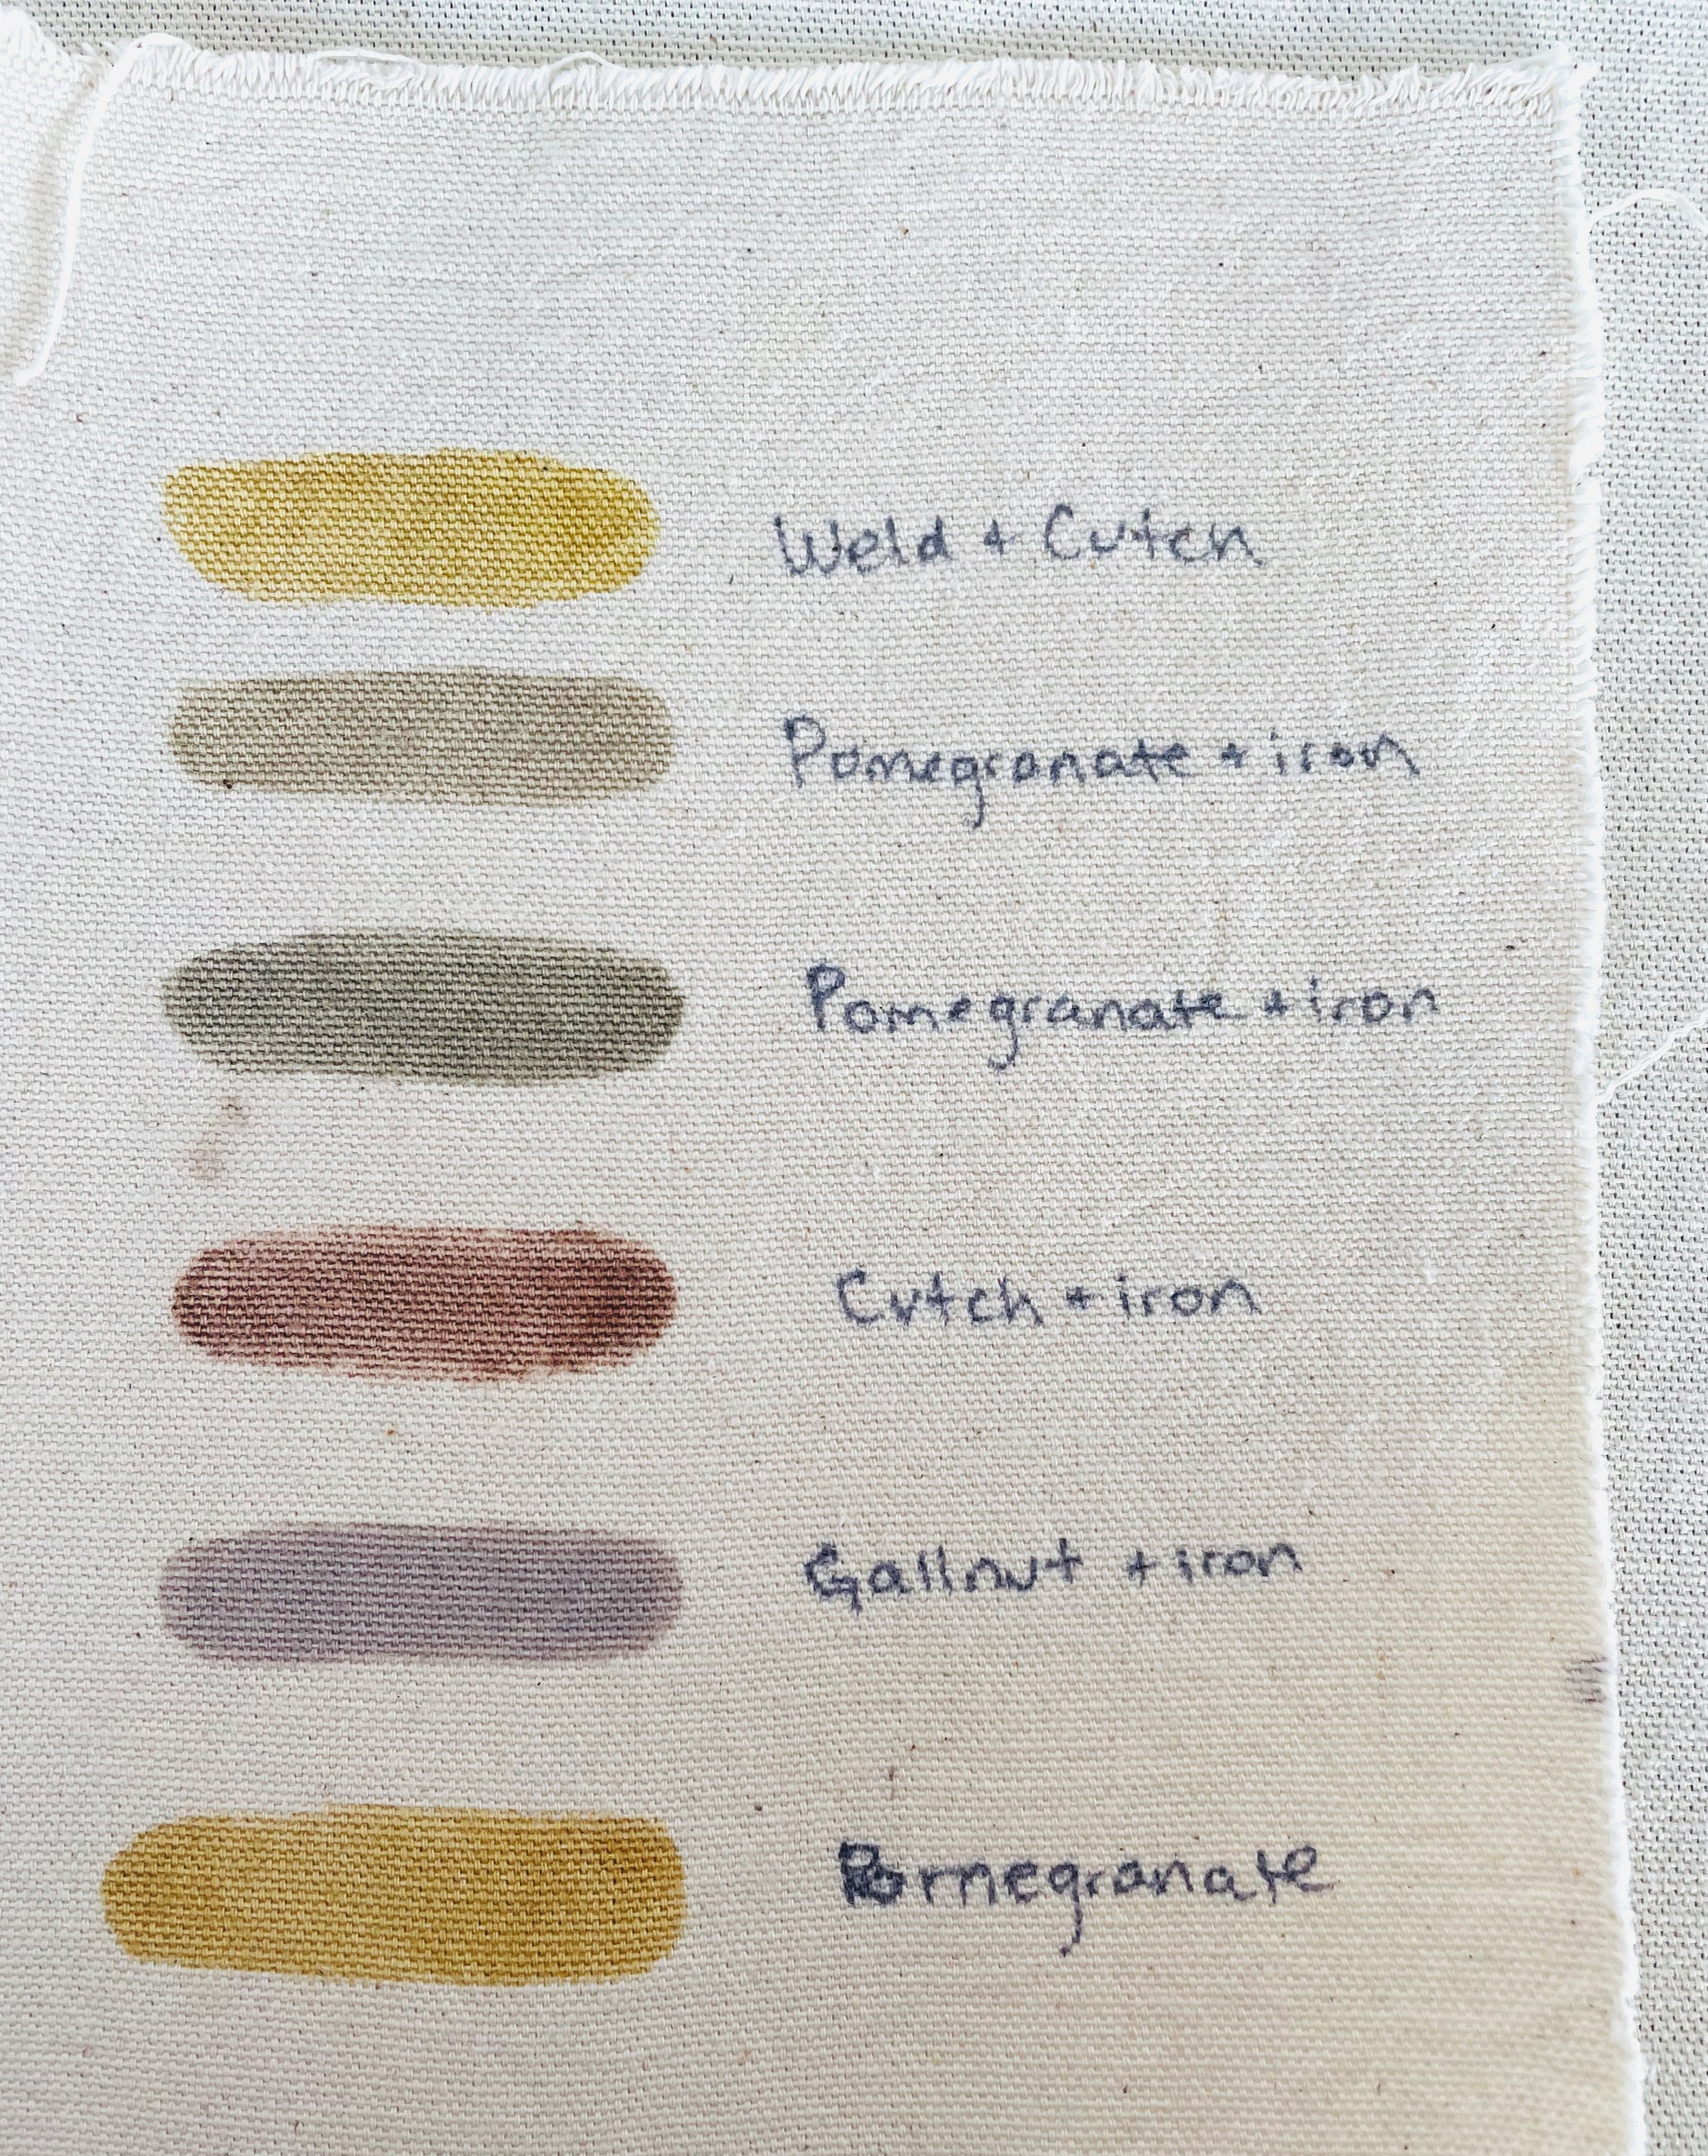 Weld + Cutch
Pomegranate + iron
Pomegranate + iron
Cutch + iron
Gallnut + iron
Pomegranate